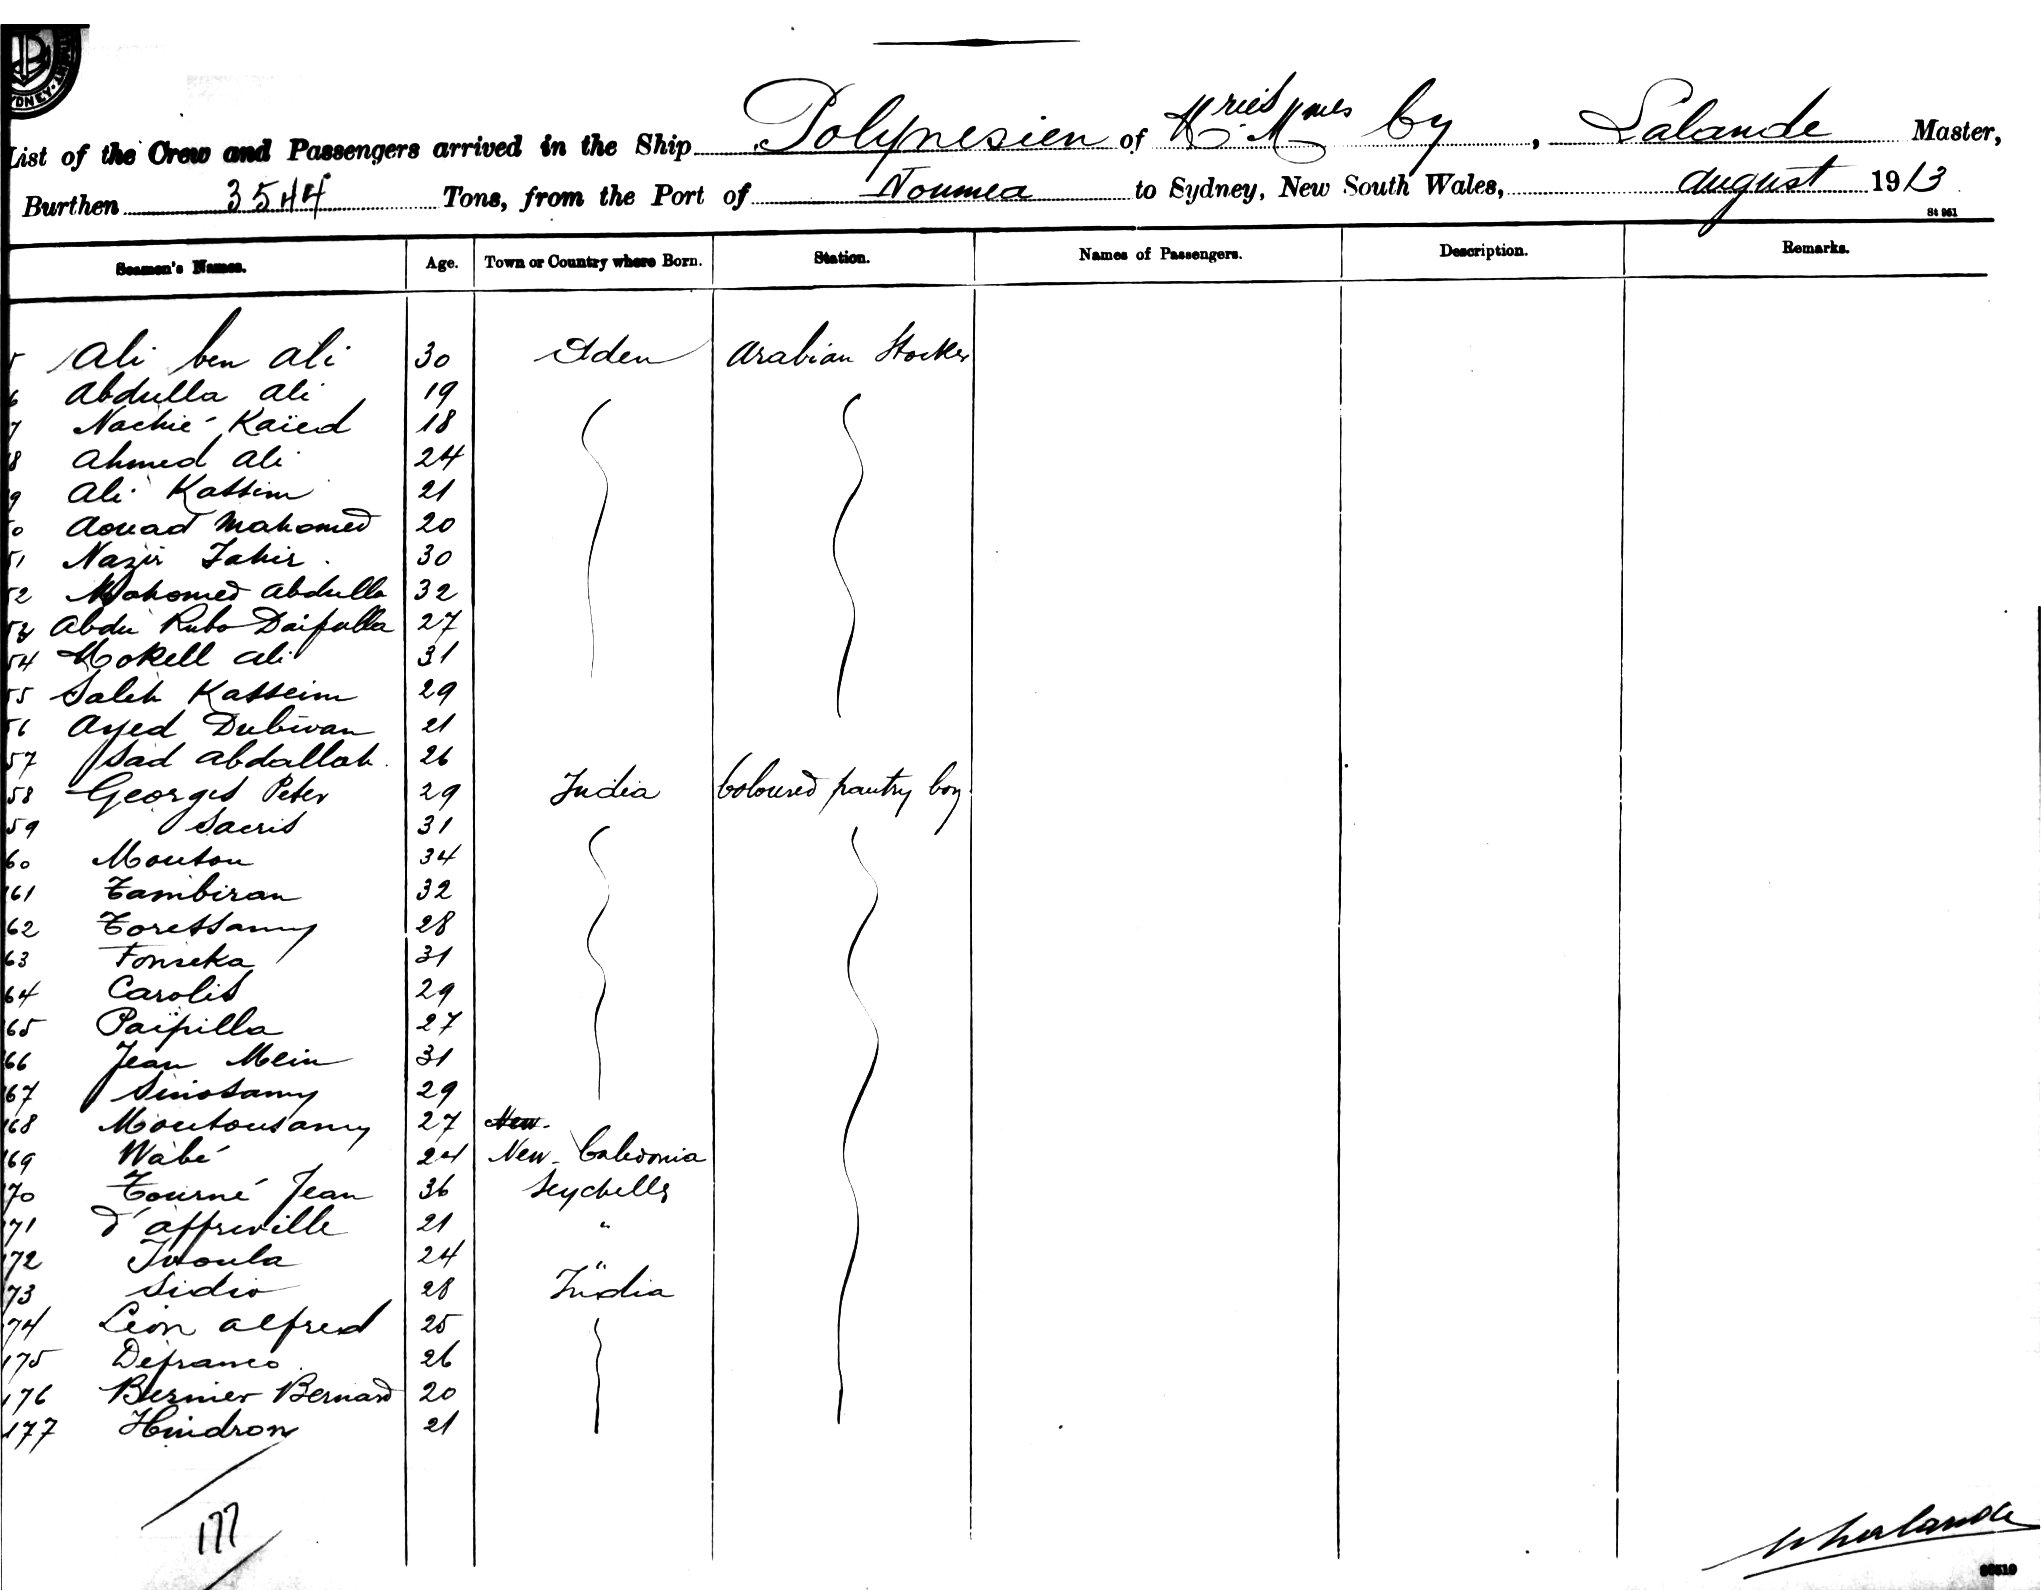 List of the Crew and Passengers arrived in the Ship Polynesien of Mries Mmes by, Lalande Master,
Burthen 3544 Tons, from the Port of Noumea to Sydney, New South Wales, August 1913
St 961
Seamen's Names. Age. Town or Country where Born. Station. Names of Passengers. Description. Remarks.
5 Ali ben Ali 30 Aden Arabian Stocker
6 Abdulla Ali 19
7 Nachié Kaïed 18
8 Ahmed Ali 24
9 Ali Kassim 21
0 Aouad Mahomed 20
51 Nazir Tahir 30
52 Mohomed Abdulla 32
53 Abdu Rubo Daifalla 27
54 Mokell Ali 31
55 Saleh Kasseim 29
56 Ayed Dubwan 21
57 Sad Abdallah 26
58 Georges Peter 29 India Coloured pantry boy
59 Sacris 31
60 Mouton 34
161 Tambiran 32
62 Toressamy 28
63 Fonseka 31
64 Carolis 29
65 Païpilla 27
66 Jean Mein 31
67 Sinosamy 29
168 Moutousamy 27 New
169 Wabé 24 New Caledonia
170 Tourné Jean 36 Seychelles
171 d'Affreville 21 "
172 24 "
173 Sidio 28 India
174 Léon Alfred 25
175 Defranco 26
176 Bernier Bernard 20
177 Hindron 21
177
Lalande